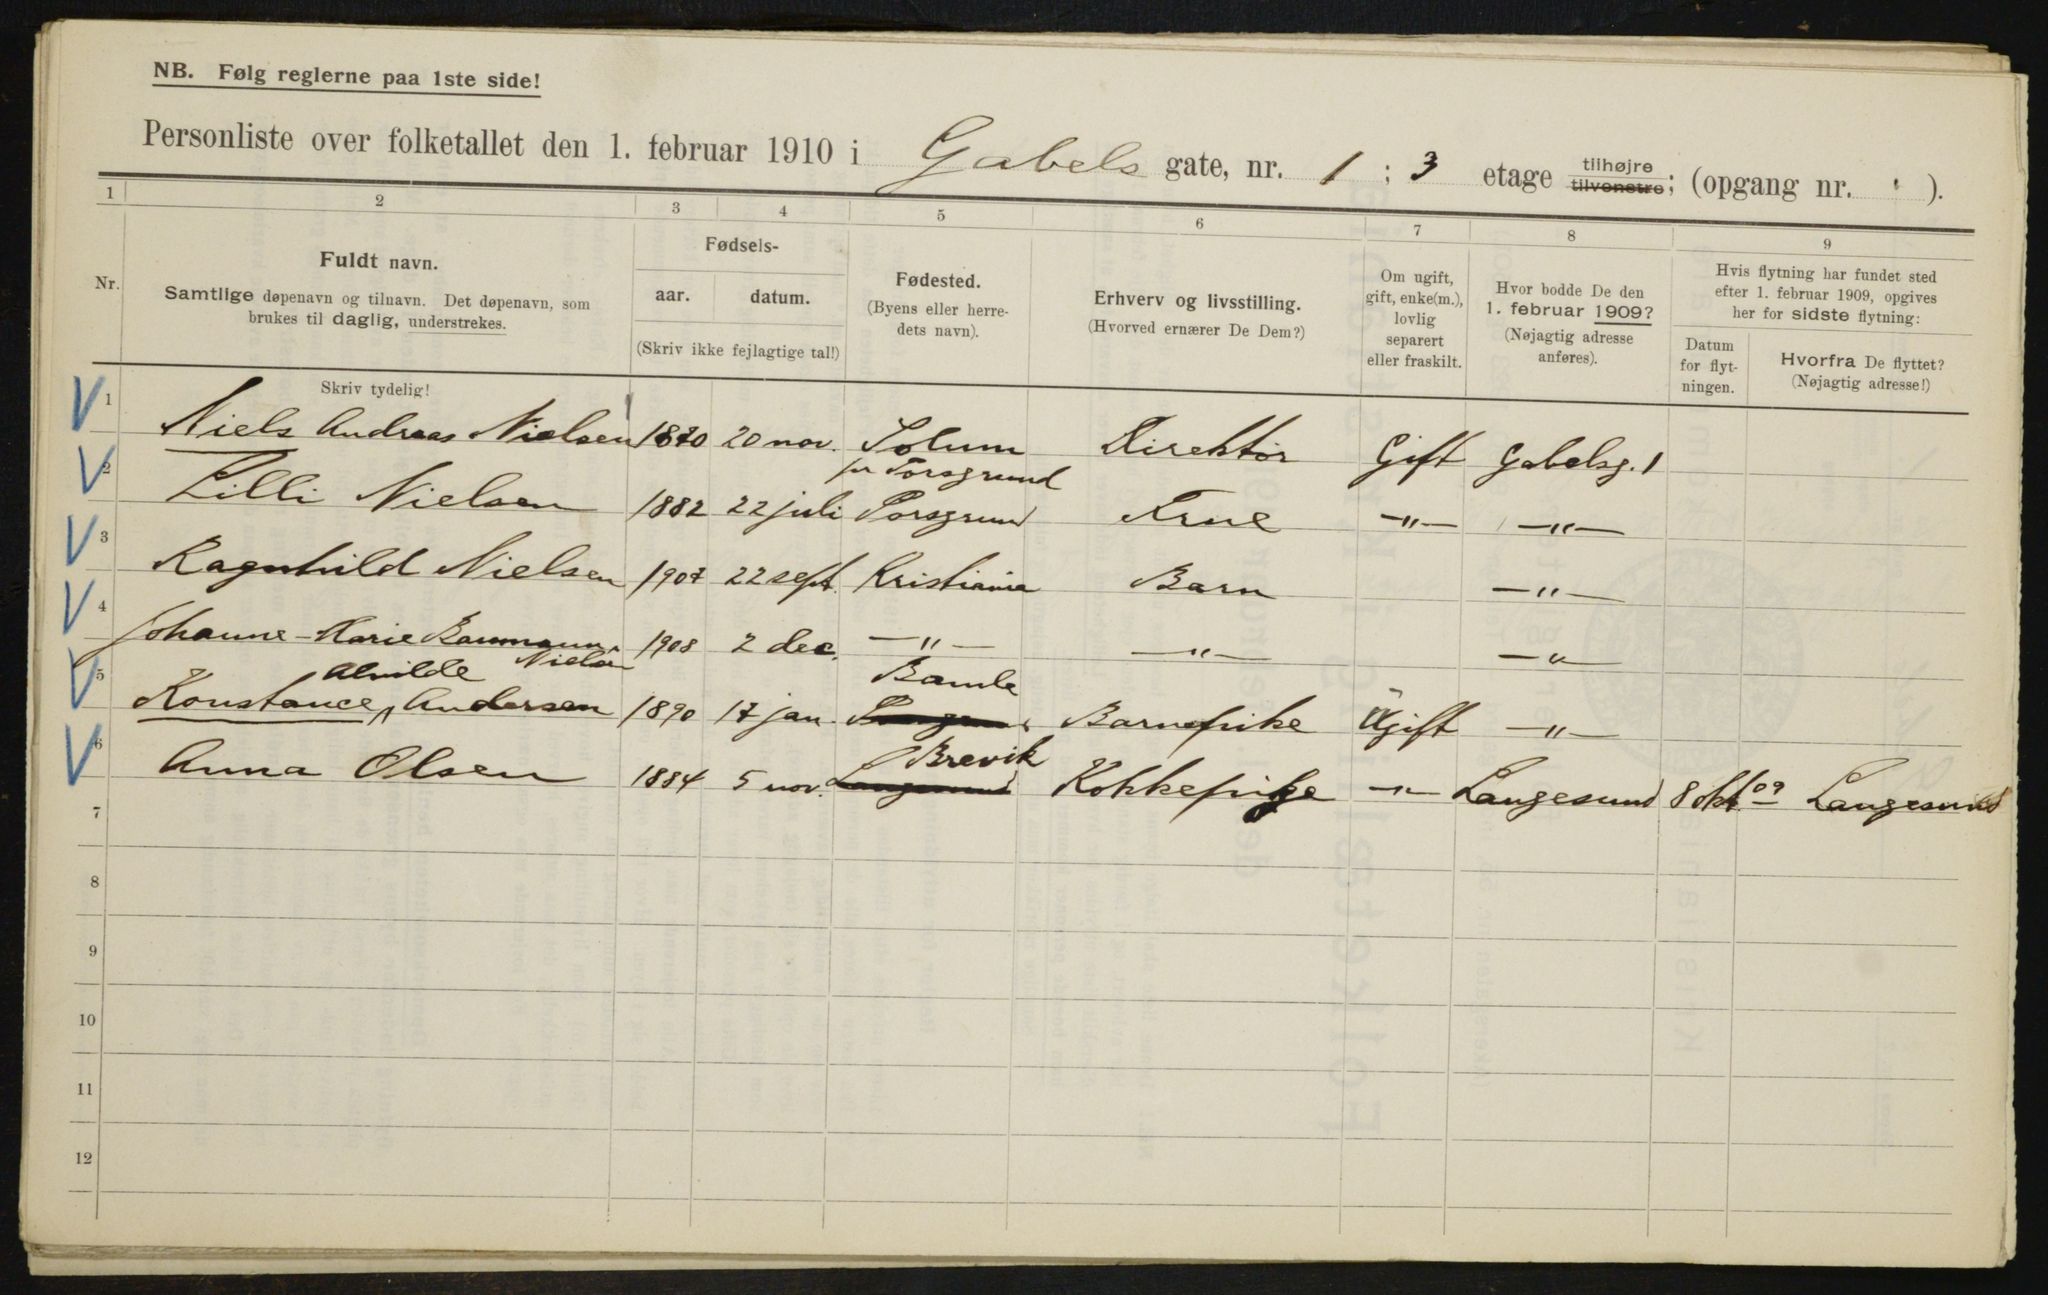 NB. Følg reglerne paa 1ste side!
Personliste over folketallet den 1. februar 1910 i Gabels gate, nr. 1 ; 3 etage tilhøjre tilvenstre; (opgang nr. ).
1 2 3 4 5 6 7 8 9
Nr.
Fuldt navn.
Samtlige døpenavn og tilnavn. Det døpenavn, som
brukes til daglig, understrekes.
Skriv tydelig!
Fødsels-
aar. datum.
(Skriv ikke fejlagtige tal!)
Fødested.
(Byens eller herre-
dets navn).
Erhverv og livsstilling.
(Hvorved ernærer De Dem?)
Om ugift,
gift, enke(m.),
lovlig
separert
eller fraskilt.
Hvor bodde De den
1. februar 1909?
(Nøjagtig adresse
anføres).
Hvis flytning har fundet sted
efter 1. februar 1909, opgives
her for sidste flytning:
Datum
for flyt-
ningen.
Hvorfra De flyttet?
(Nøjagtig adresse!)
1 Niels Andreas Nielsen 1870 20 nov. Solum pr Porsgrund Direktør Gift Gabelsg. 1
2 Lilli Nielsen 1882 22 juli Porsgrund Frue —"— —"—
3 Ragnhild Nielsen 1907 22 sept. Kristiania Barn —"—
4 Johanne-Marie Baumann Nielsen 1908 2 dec. —"— —"— —"—
5 Konstance Alvilde Andersen 1890 17 jan. Bamle Barnepike Ugift —"—
6 Anna Olsen 1884 5 nov. Langesund Brevik Kokkepige —"— Langesund 8 okt. 09 Langesund
7
8
9
10
11
12